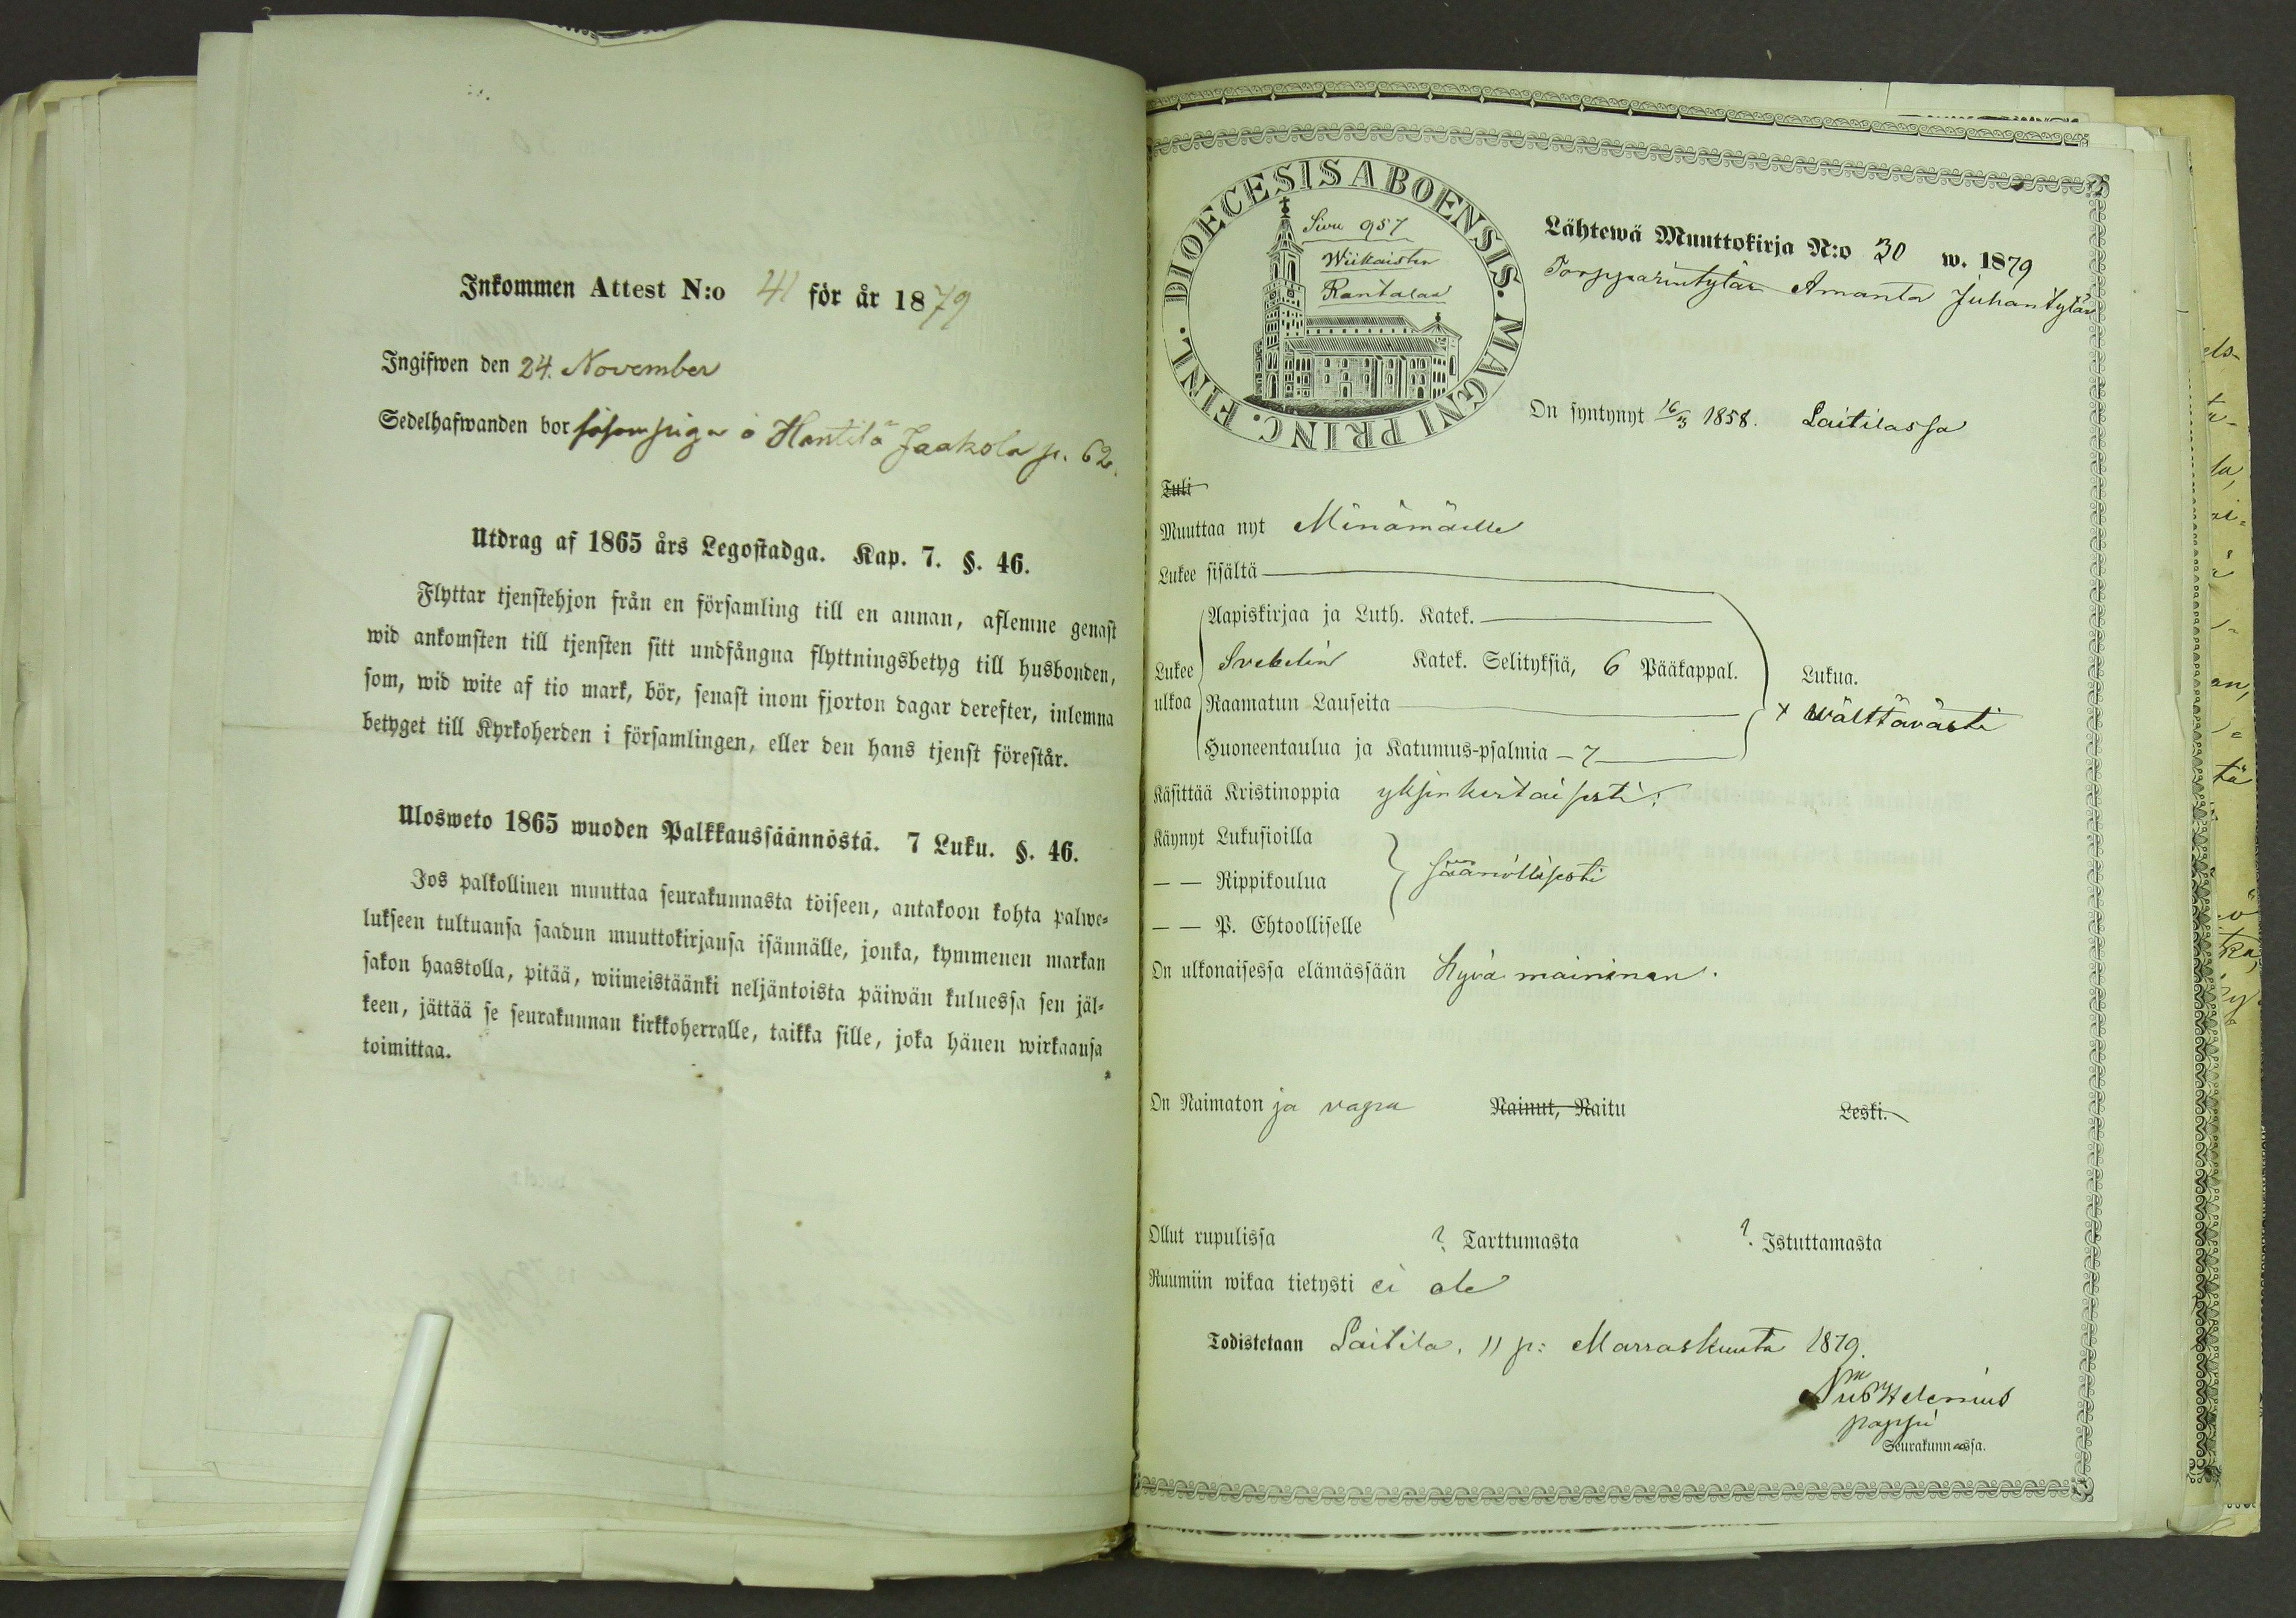 Inkommen Attest N:o 41 för år 1879
Ingifwen den 24. November
Sedelhafwanden bor såsom piga å Hantilä Jaakola p. 62.
Utdrag af 1865 års Legostadga. Kap. 7. §. 46.
Flyttar tjenstehjon från en församling till en annan, aflemne genast
wid ankomsten till tjensten sitt undfångna flyttningsbetyg till husbonden,
som, wid wite af tio mark, bör, senast inom fjorton dagar derefter, inlemna
betyget till Kyrkoherden i församlingen, eller den hans tjenst förestår.
Ulosweto 1865 wuoden Palkkaussäännöstä. 7 Luku. §. 46.
Jos palkollinen muuttaa seurakunnasta toiseen, antakoon kohta palwe-
lukseen tultuansa saadun muuttokirjansa isännälle, jonka, kymmenen markan
sakon haastolla, pitää, wiimeistäänki neljäntoista päiwän kuluessa sen jäl-
keen, jättää se seurakunnan kirkkoherralle, taikka sille, joka hänen wirkaansa
toimittaa.
DIOECESIS ABOENSIS. MAGNI PRINC. FINL.
Sivu 957
Wiikaisten
Rantalaa
Lähtewä Muuttokirja N:o 30 w. 1879
Torpparintytär Amanta Juhantytär
On syntynyt 16/3 1858. Laitilassa
Tuli
Muuttaa nyt Minämäelle
Lukee sisältä
Aapiskirjaa ja Luth. Katek.
Lukee ulkoa
Svebelin Katek. Selityksiä, 6 Pääkappal.
Lukua.
Raamatun Lauseita
x wälttävästi
Huoneentaulua ja Katumus-psalmia - 7
Käsittää Kristinoppia yksinkertaisesti.
Käynyt Lukusioilla
— — Rippikoulua säänöllisesti
— — P. Ehtoolliselle
On ulkonaisessa elämässään hyvä maininen.
On Naimaton ja vapa Nainut, Naitu Leski.
Ollut rupulissa ? Tarttumasta ?. Istuttamasta
Ruumiin wikaa tietysti ei ole
Todistetaan Laitila, 11 p: Marraskuuta 1879.
Helenius
pappi
Seurakunnassa.